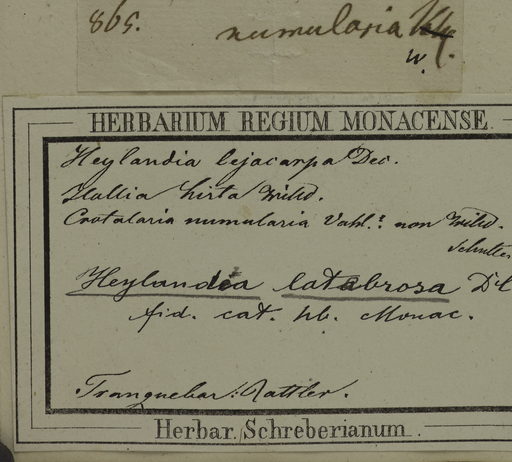 865.
numularia
W.
HERBARIUM REGIUM MONACENSE
Heylandia lejacarpa Dec.
Hallia hirta Willd.
Crotalaria numularia Vahl.? non Willd.
Heylandia latebrosa DC
fid. cat. hb. Monac.
Tranquebar: Rottler.
Herbar. Schreberianum.